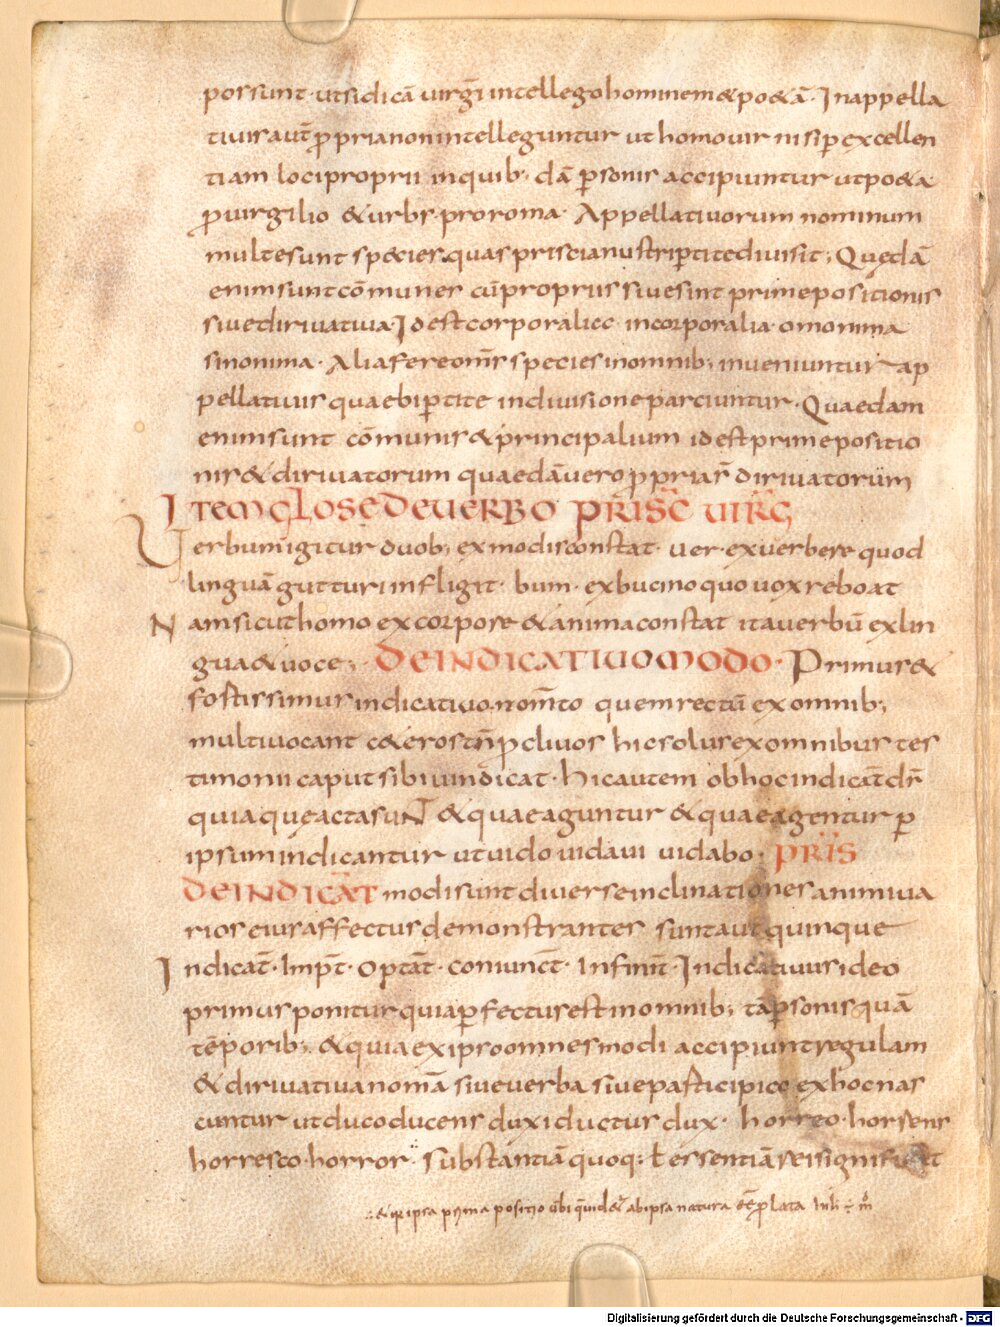 possunt · ut si dicā uirgī intellego hominem & po&ā · In appella
tiuis aut̄ ꝓpria non intelleguntur ut homo uir nisi ꝑ excellen
tiam loci proprii in quib; dā ꝑsonis accipiuntur ut po&a
ꝓ uirgilio & urbs · pro roma · Appellatiuorum nominum
multe sunt species quas priscianus triꝑtite diuisit; Quędā
enim sunt cōmunes cū propriis siue sint prime positionis
siue diriuatiua · Id est corporalia incorporalia · omonima
sinonima · Alia fere om̄s species in omnib; inueniuntur ap
pellatiuis quae biꝑtite in diuisione parciuntur · Quaedam
enim sunt cōmunis & principalium id est prime positio
nis & diriuatorum quaedā uero ꝓpriaꝶ diriuatorum
ITEM GLOSE DE UERBO PRISC̄ UIRḠ
Uerbum igitur duob; ex modis constat · uer · ex uerbere quod
linguā gutturi infligit · bum · ex bucino quo uox reboat
Nam sicut homo ex corpore & anima constat ita uerbū ex lin
gua & uoce; DE INDICATIUO MODO · Primus &
fortissimus indicatiuo nom̄to quem rectū ex omnib;
multi uocant c&eros tn̄ ꝓcliuos hic solus ex omnibus tes
timonii caput sibi uindicat · hic autem ob hoc indicat̄ dr̄
quia que acta suNT & quae aguntur & quae agentur ꝑ
ipsum indicantur ut uido uidaui uidabo · PRIS
DE INDICAT̄ modi sunt diuerse inclinationes animi ua
rios eius affectus demonstrantes sunt aut̄ quinque
Indicat̄ · Imp̄t · Optāt · coniunct̄ · Infinit̄ · Indicatiuus ideo
primus ponitur quia ꝑfectus est in omnib; tā ꝑsonis quā
tēporib; & quia ex ipso omnes modi accipiunt regulam
& diriuatiua nom̄a siue uerba siue participia ex hoc nas
cuntur ut duco ducens duxi ductus dux · horreo · horrens
horresco · horror · Substantiā quoq; ł essentiā rei significat
& ipsa prima positio ab ipsa natura ꝓlata
Digitalisierung gefördert durch die Deutsche Forschungsgemeinschaft - DFG